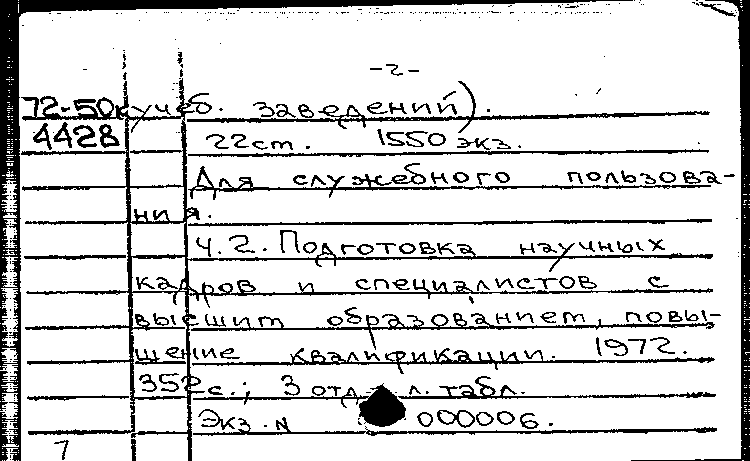 -2-
72-50к учеб. заведений).
4428 22ст. 1550 экз.
Для служебного пользова-
ния.
Ч.2. Подготовка научных
кадров и специалистов с
высшим образованием, повы-
шение квалификации. 1972.
352с.; 3 отд. л. табл.
Экз. N 000006.
7